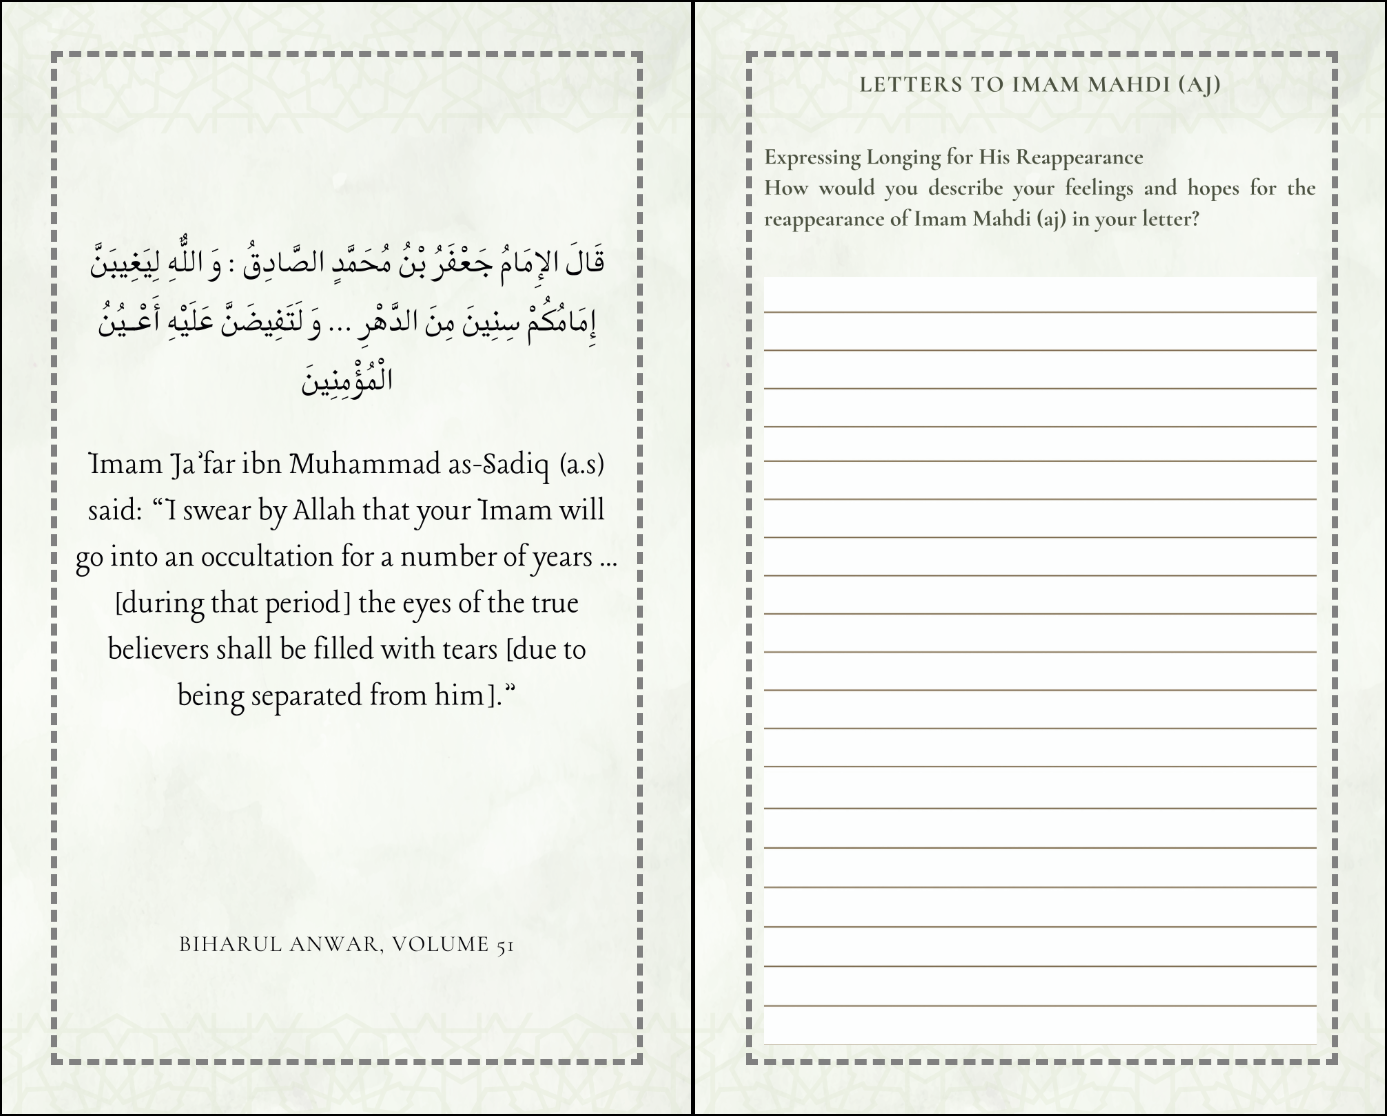 قَالَ الإِمَامُ جَعْفَرُ بْنُ مُحَمَّدٍ الصَّادِقُ : وَ اللّٰهِ لِيَغِيبَنَّ
إِمَامُكُمْ سِنِينَ مِنَ الدَّهْرِ ... وَ لَتَفِيضَنَّ عَلَيْهِ أَعْـيُنُ
الْمُؤْمِنِينَ
Imam Ja’far ibn Muhammad as-Sadiq (a.s)
said: “I swear by Allah that your Imam will
go into an occultation for a number of years ...
[during that period] the eyes of the true
believers shall be filled with tears [due to
being separated from him].”
BIHARUL ANWAR, VOLUME 51
LETTERS TO IMAM MAHDI (AJ)
Expressing Longing for His Reappearance
How would you describe your feelings and hopes for the
reappearance of Imam Mahdi (aj) in your letter?